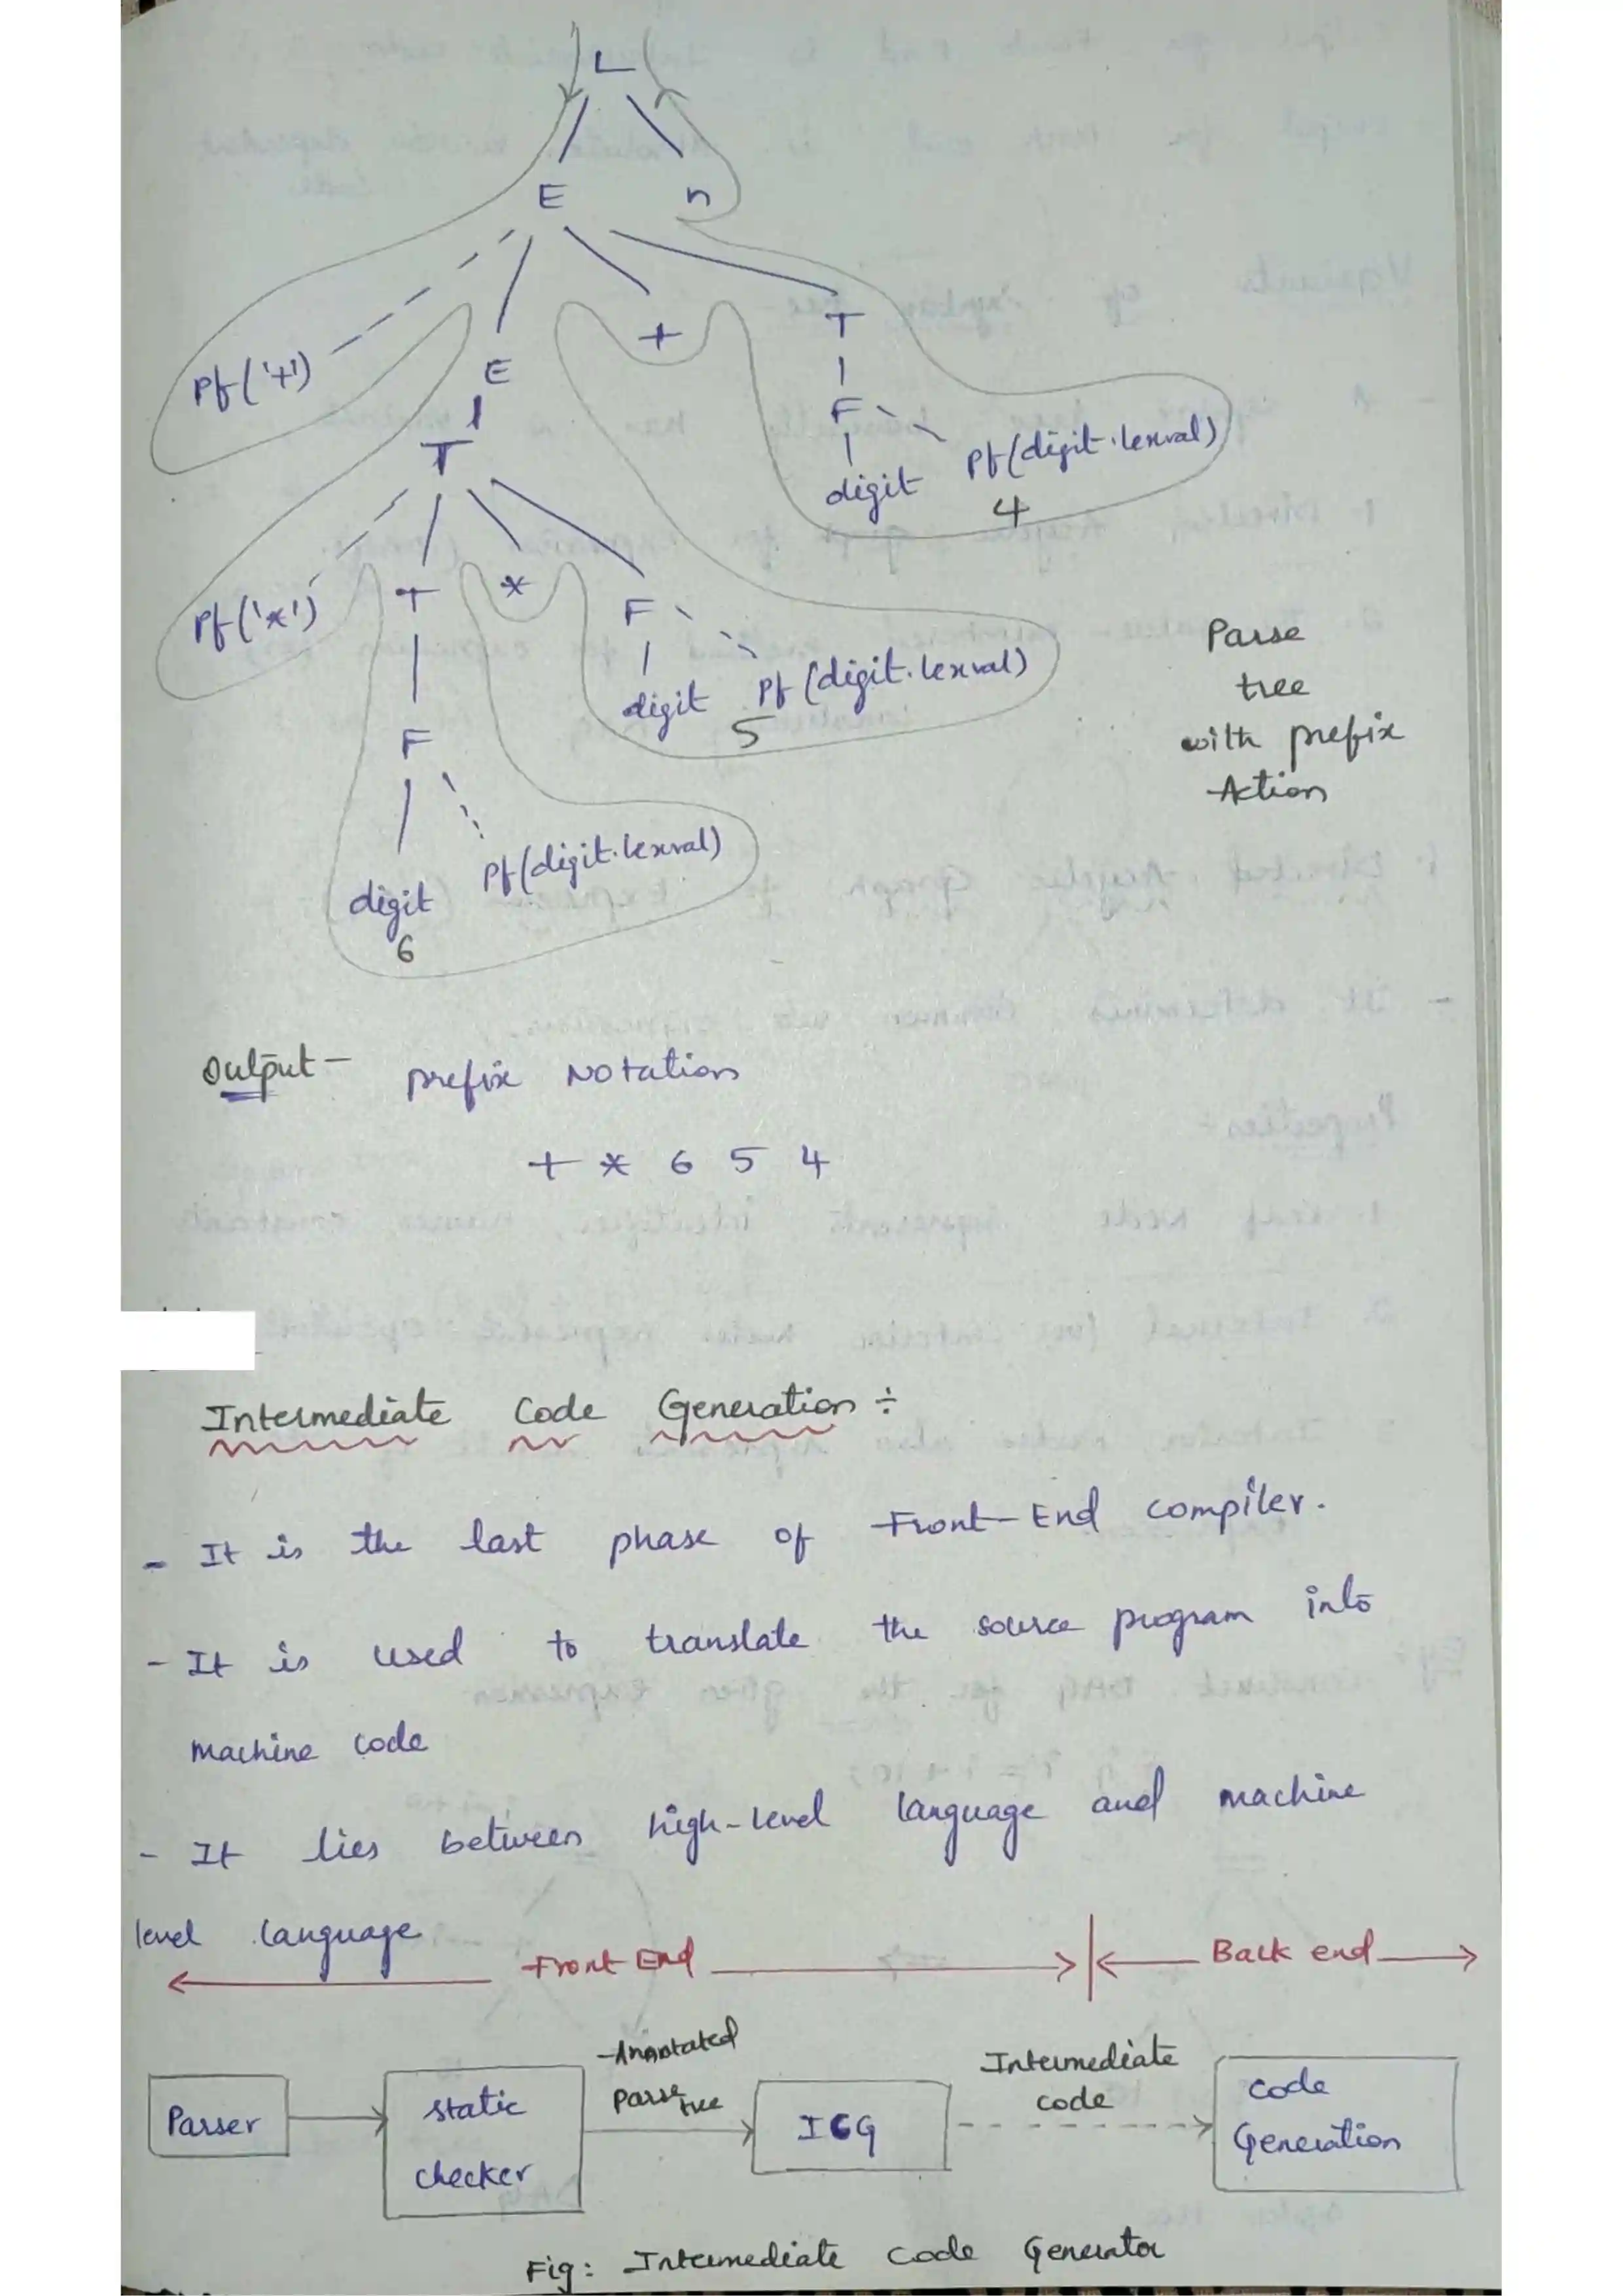 L
E n
Pf('+') E + T
T F Pf(digit.lexval)
digit 4
Pf('*') T * F
digit Pf(digit.lexval)
5
F
digit Pf(digit.lexval)
6
Parse
tree
with prefix
Action
Output - prefix Notation
+ * 6 5 4
Intermediate Code Generation ÷
- It is the last phase of Front-End compiler.
- It is used to translate the source program into
machine code
- It lies between high-level language and machine
level language
Front End Back end
Parser
static
checker
Annotated
Parse tree
ICG
Intermediate
code
code
Generation
Fig: Intermediate code Generator